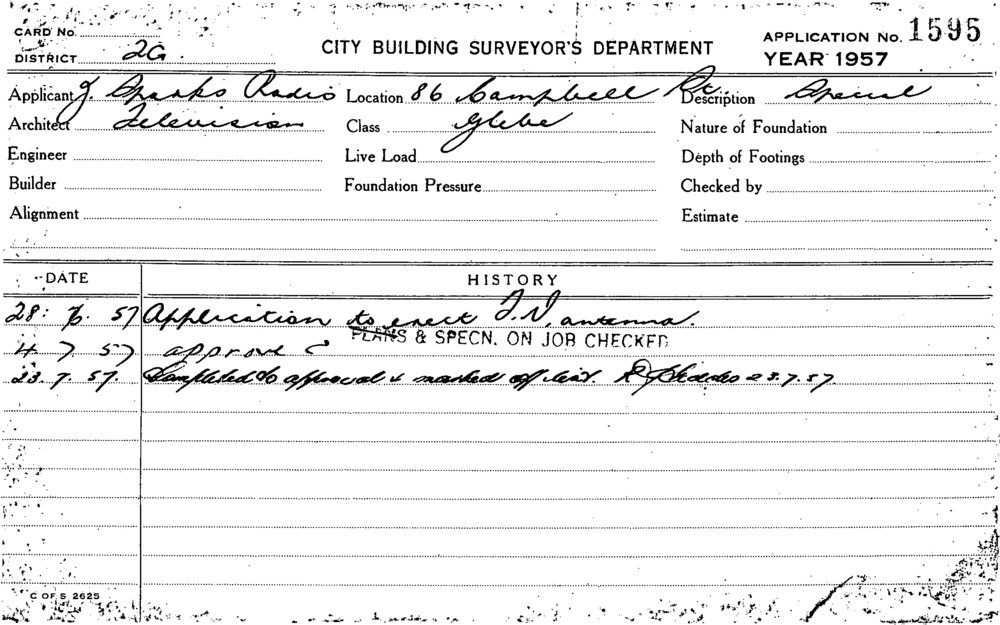 CARD No.
DISTRICT 2G.
CITY BUILDING SURVEYOR'S DEPARTMENT
APPLICATION No. 1595
YEAR 1957
Applicant J. Sparks Radio Location 86 Campbell Description Special
Architect Television Class Glebe Nature of Foundation
Engineer Live Load Depth of Footings
Builder Foundation Pressure Checked by
Alignment Estimate
DATE HISTORY
28. 6. 57 Application to erect T.V. antenna.
PLANS & SPECN. ON JOB CHECKED
4 7 57 approve
23.7.57. Completed to approval & marked off list. 23.7.57
C OF S 2625